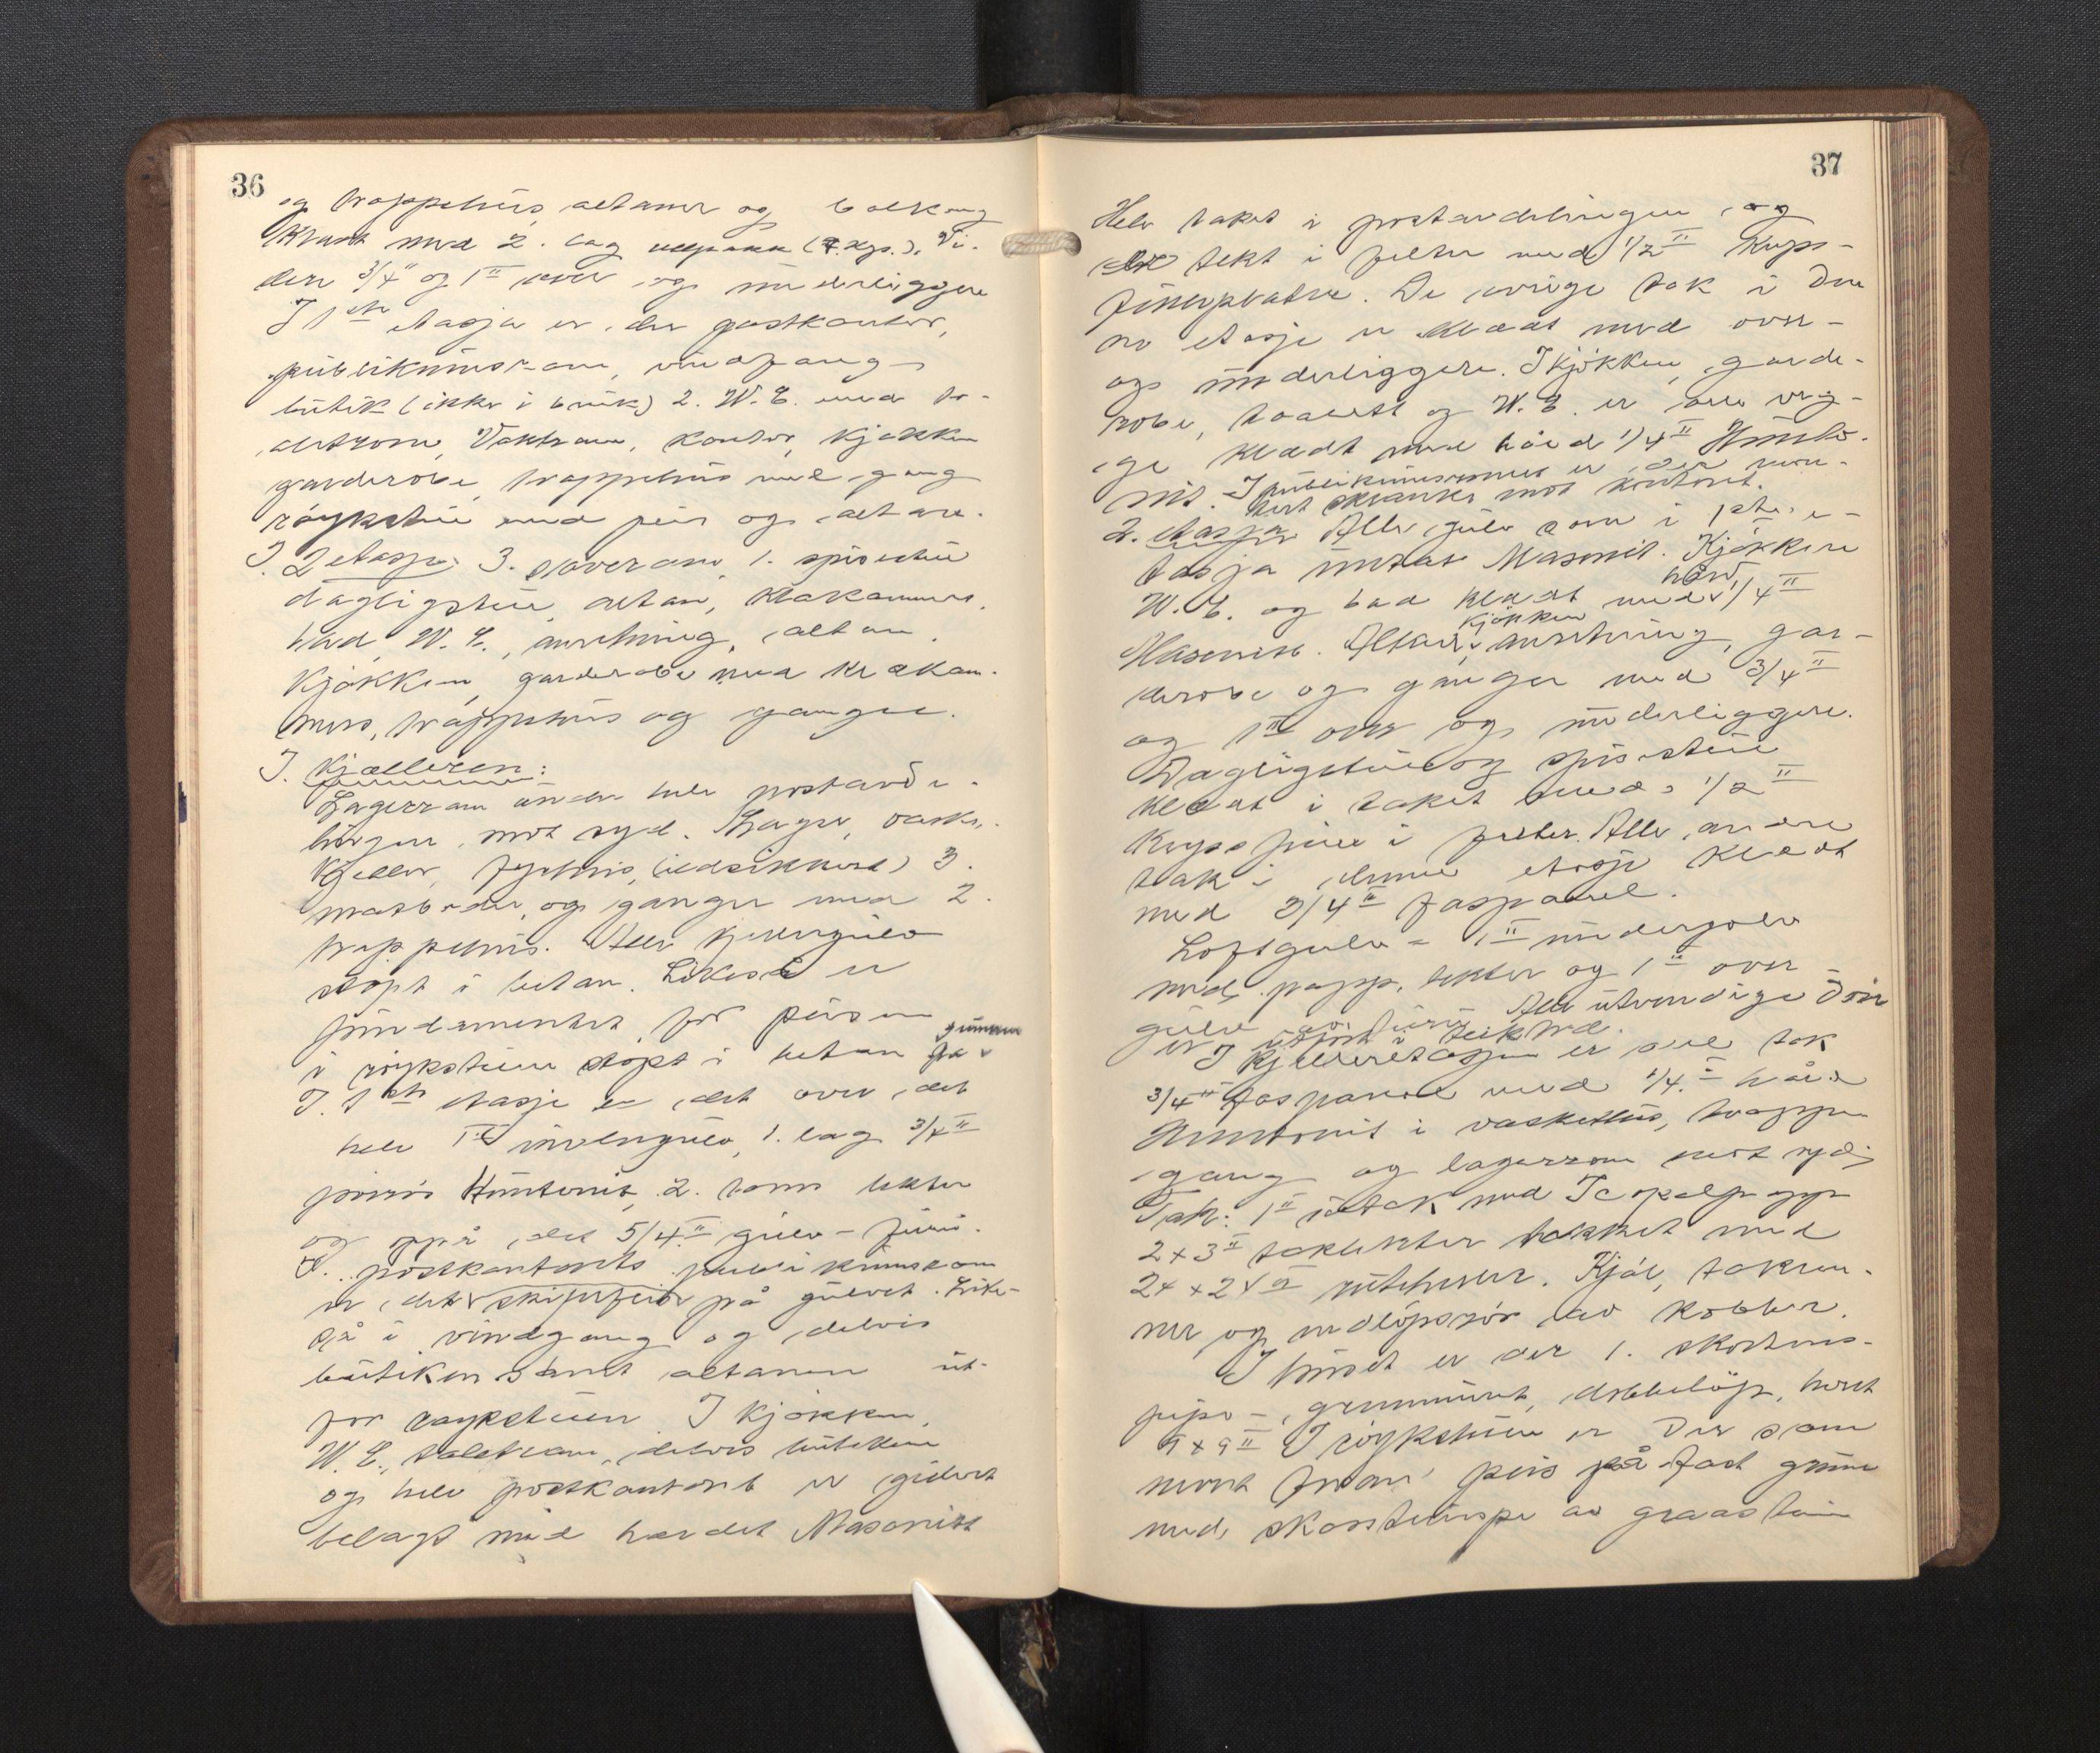 36
og trappehus, altaner og balkong
klædt med 2. lag ullpapp (7 kgs.). Vi-
dere 3/4" og 1" over og underliggere
I 1ste etasje er der postkontor,
publikumsrom, vindfang
butik (ikke i bruk) 2. W.C. med to-
aletrom, Vaktrom, kontor, kjøkken
garderobe, trappehus med gang
röykstue med peis og altan.
I. 2 etasje: 3. soverom, 1. spisestue
dagligstue, altan, klækammers,
bad, W.C., anretning, altan,
kjøkken, garderobe med klækam-
mers, trappehus og ganger.
I. Kjælleren:
Lagerrom under hele postavde-
lingen, mot syd. Lager, vaske-
kjeller, fyrhus, (ildsikkert) 3.
matboder, og ganger med 2.
trappehus. Alle kjellergulv
støpt i betong. Likeså er
fundamentet for peisen
i röykstuen støpt i betong grunnen
I. 1ste etasje er det over det
hele 1" undergulv, 1. lag 3/4"
porøs Huntonit, 2. toms lekter
og oppå det 5/4" gulv - furu.
I. postkontorets publikumsrom
er det skiferfliser på gulvet. Like-
så i vindgang og delvis
butiken samt altanen ut-
for röykstuen I kjøkken,
W.C., toaletrom, delvis butikken
og hele postkontoret er gulvet
belagt med herdet Masonitt
37
Hele taket i postavdelingen og
er tekt i felter med 1/2" Kryss-
finerplater. De øvrige tak i den-
ne etasje er klædt med over-
og underliggere. I kjøkken, garde-
robe, toalett og W.C. er alle veg-
ge klædt med hård 1/4" Hunto-
nit. I publikumsrommet er der mon-
tert skranke mot kontoret.
2. etasje Alle gulv som i 1ste e-
tasje untat Masonit. Kjøkken
W.C. og bad klædt med hård 1/4"
Masonit. Altan, kjøkken anretning, gar-
derobe og ganger med 3/4"
og 1" over og underliggere.
Dagligstue og spisestue
klædt i taket med 1/2"
Kryssfiner i felter. Alle andre
tak i denne etasje klædt
med 3/4" faspanel.
Loftgulv - 1" undergolv
med papp, lekter og 1" over-
gulv av furu. Alle utvendige dører
er utført i teiktræ.
I kjelleretasjen er alle tak
3/4" faspanel med 1/4" hård
Huntonit i vaskehus, trappe-
gang og lagerrom mot syd.
Tak: 1" sutak med papp
2 x 3" taklekter tekket med
skiferheller. Kjøl, takren-
ner og nedløpsrør av kobber.
I huset er der 1. skorstens-
pipe - grunnmuret, dobbeltløp, hvert
9 x 9" I röykstuen er der som
nevnt foran peis på fast grunn
med skorstenspipe av graasten